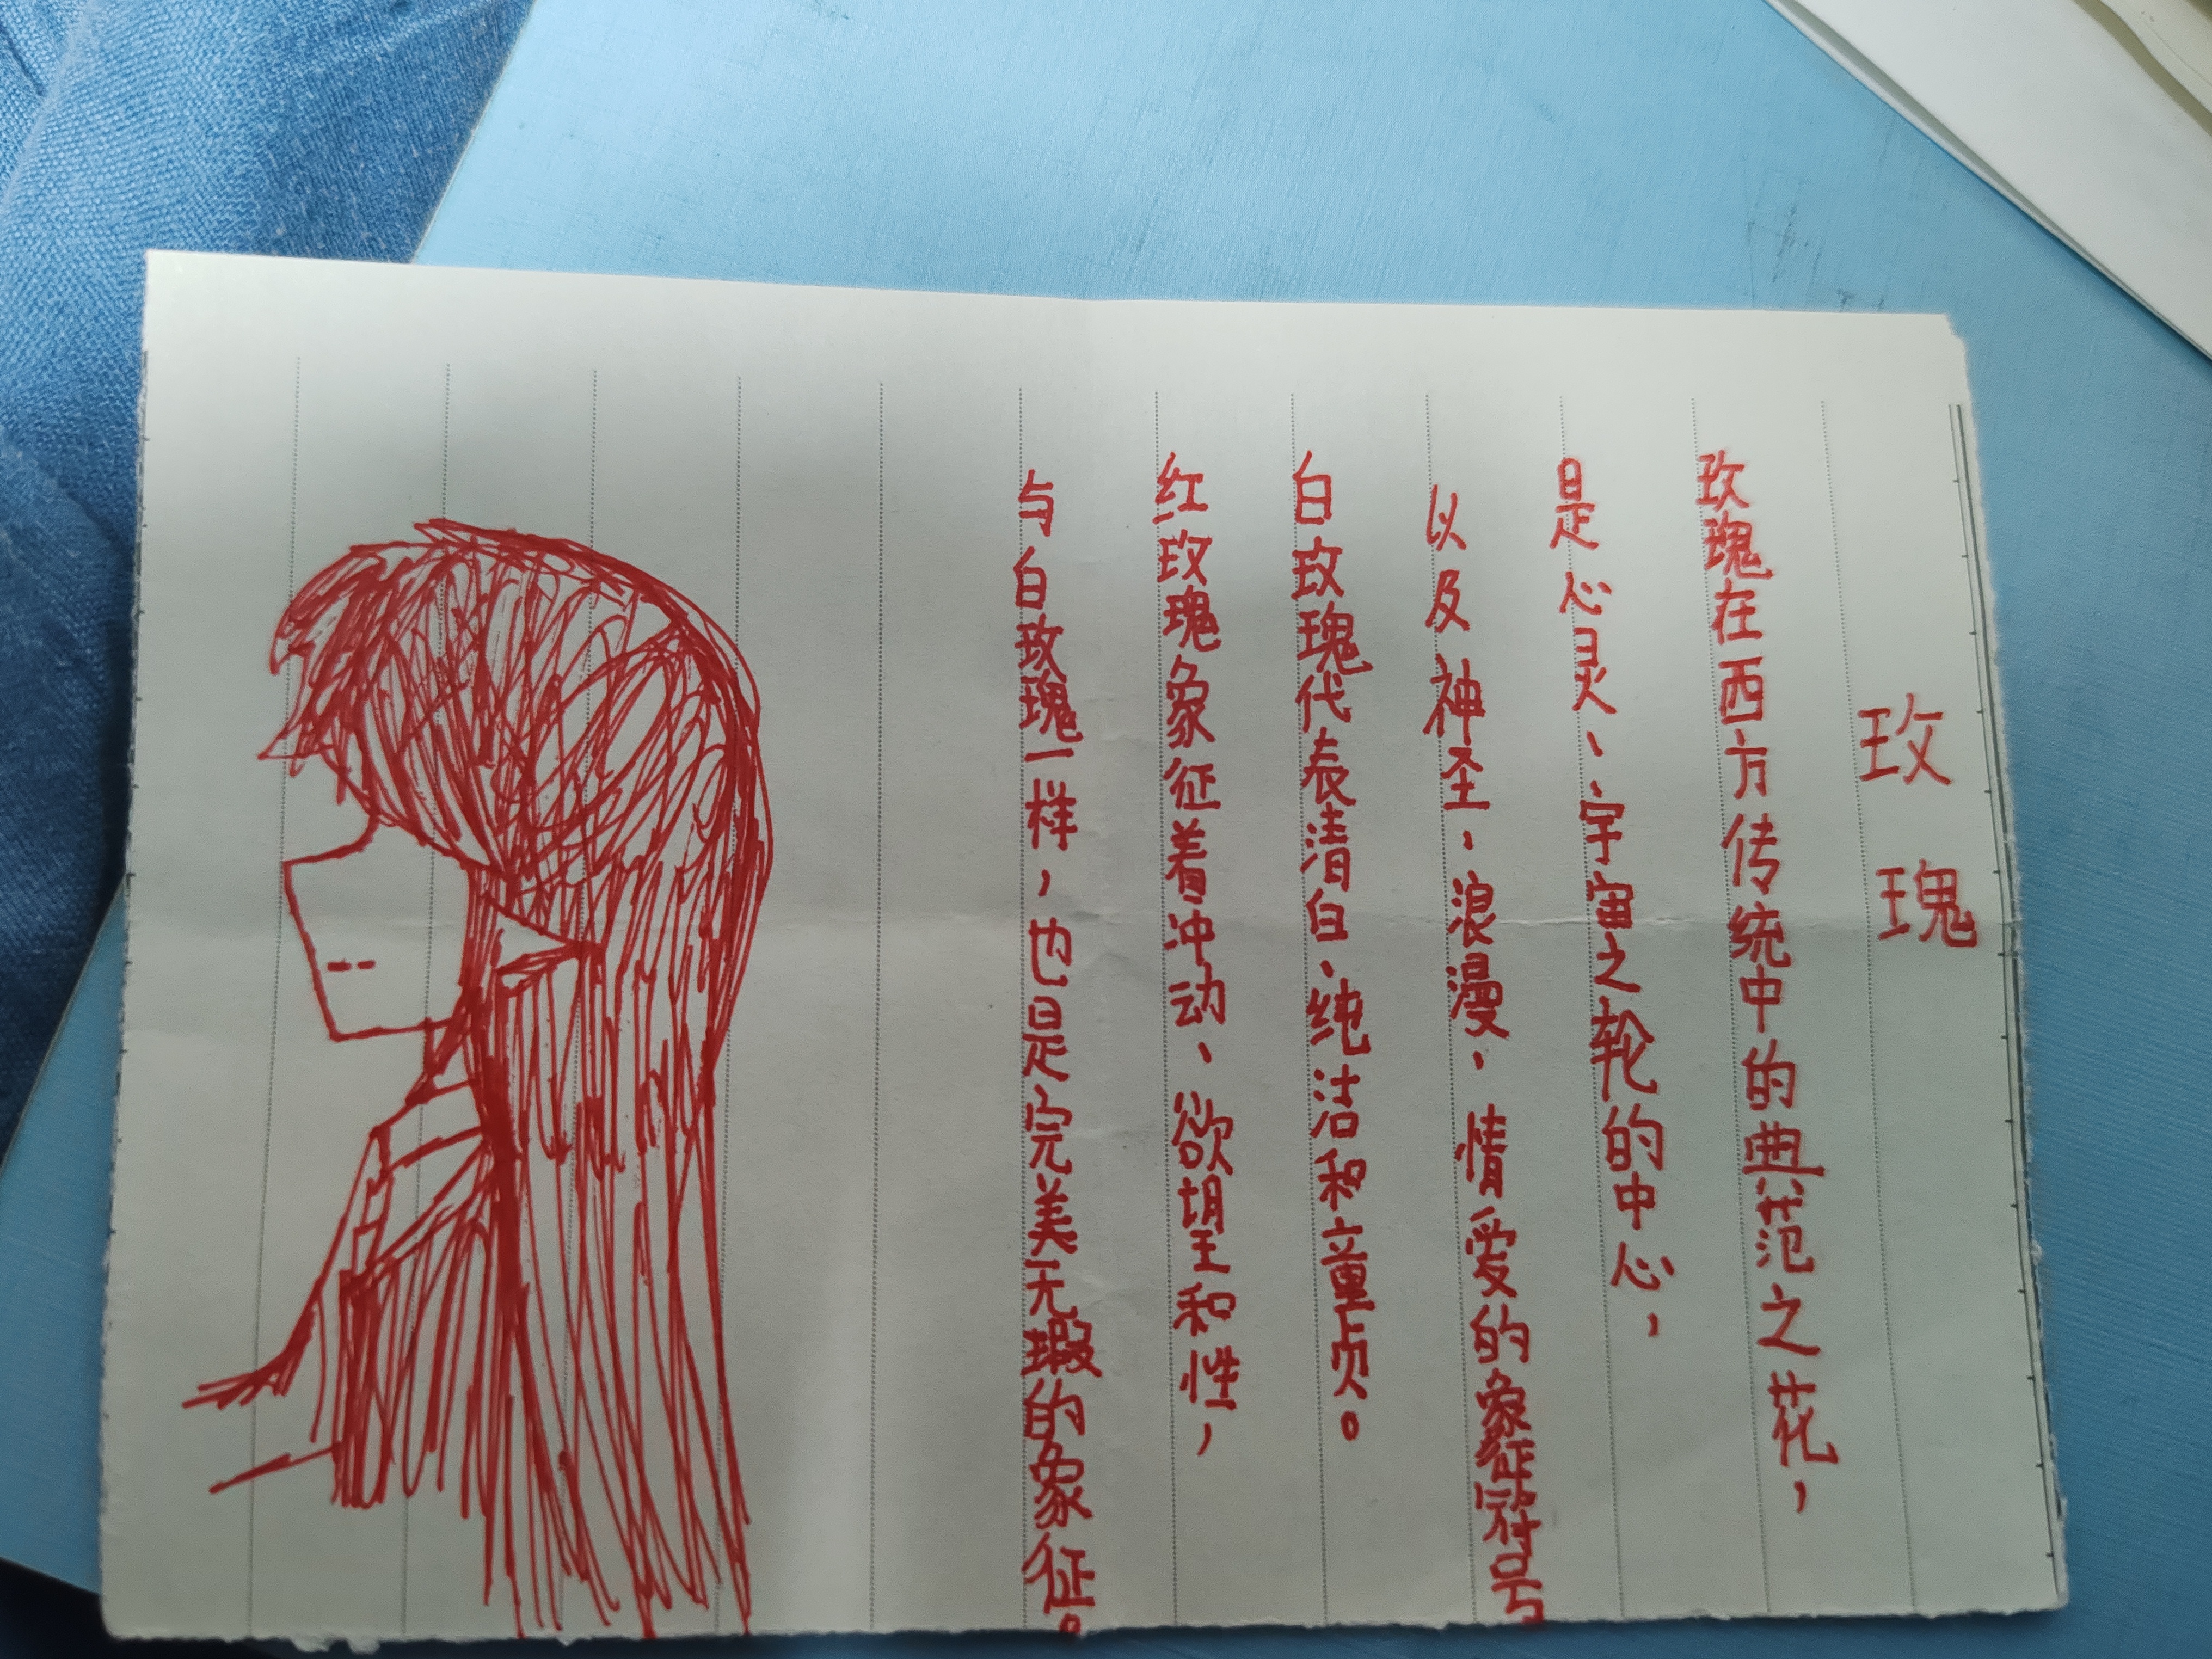 玫瑰
玫瑰在西方传统中的典范之花，
是心灵、宇宙之轮的中心，
以及神圣、浪漫、情爱的象征符号
白玫瑰代表清白、纯洁和童贞。
红玫瑰象征着冲动、欲望和性，
与白玫瑰一样，也是完美无瑕的象征。